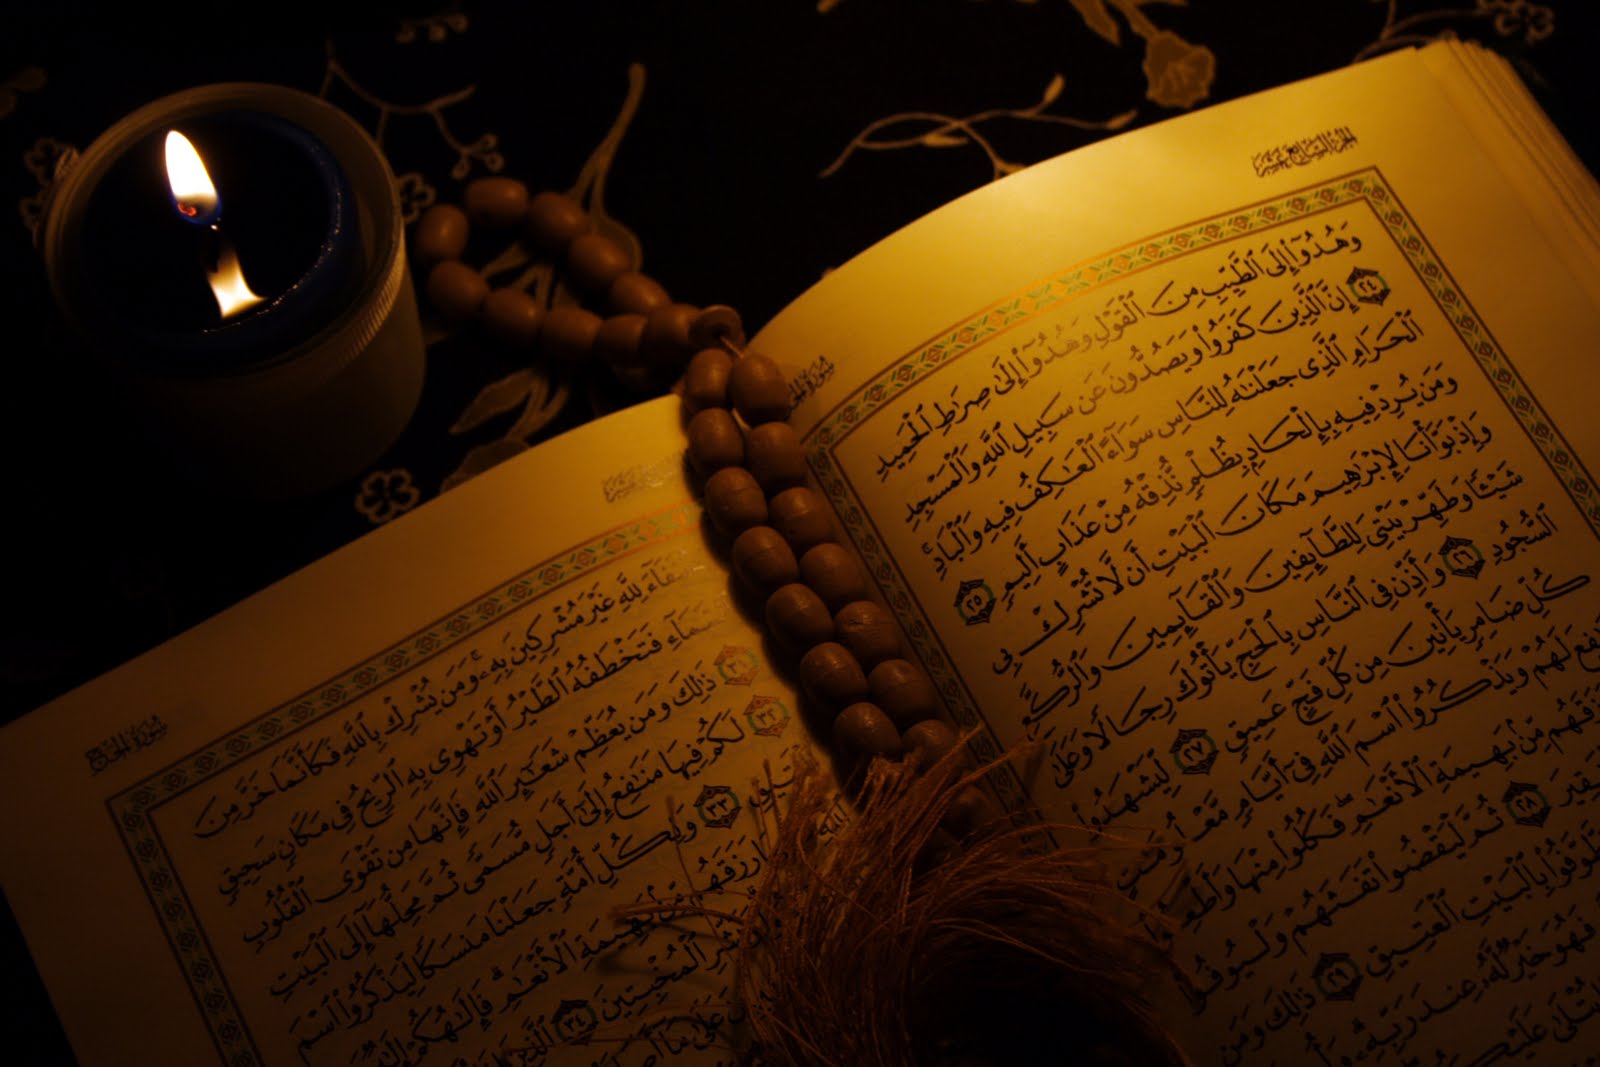 الجزء السابع عشر
سورة الحج
وَهُدُوٓا۟ إِلَى ٱلطَّيِّبِ مِنَ ٱلْقَوْلِ وَهُدُوٓا۟ إِلَىٰ صِرَٰطِ ٱلْحَمِيدِ
٢٤ إِنَّ ٱلَّذِينَ كَفَرُوا۟ وَيَصُدُّونَ عَن سَبِيلِ ٱللَّهِ وَٱلْمَسْجِدِ
ٱلْحَرَامِ ٱلَّذِى جَعَلْنَٰهُ لِلنَّاسِ سَوَآءً ٱلْعَٰكِفُ فِيهِ وَٱلْبَادِ ۚ
وَمَن يُرِدْ فِيهِ بِإِلْحَادٍۭ بِظُلْمٍ نُّذِقْهُ مِنْ عَذَابٍ أَلِيمٍ ٢٥
وَإِذْ بَوَّأْنَا لِإِبْرَٰهِيمَ مَكَانَ ٱلْبَيْتِ أَن لَّا تُشْرِكْ بِى
شَيْـًٔا وَطَهِّرْ بَيْتِىَ لِلطَّآئِفِينَ وَٱلْقَآئِمِينَ وَٱلرُّكَّعِ
ٱلسُّجُودِ ٢٦ وَأَذِّن فِى ٱلنَّاسِ بِٱلْحَجِّ يَأْتُوكَ رِجَالًا وَعَلَىٰ
كُلِّ ضَامِرٍ يَأْتِينَ مِن كُلِّ فَجٍّ عَمِيقٍ ٢٧ لِّيَشْهَدُوا۟
لَهُمْ وَيَذْكُرُوا۟ ٱسْمَ ٱللَّهِ فِىٓ أَيَّامٍ مَّعْلُومَٰتٍ
مِّنۢ بَهِيمَةِ ٱلْأَنْعَٰمِ ۖ فَكُلُوا۟ مِنْهَا وَأَطْعِمُوا۟
٢٨ ثُمَّ لْيَقْضُوا۟ تَفَثَهُمْ وَلْيُوفُوا۟
بِٱلْبَيْتِ ٱلْعَتِيقِ ٢٩ ذَٰلِكَ وَمَن
فَهُوَ خَيْرٌ لَّهُۥ عِندَ رَبِّهِۦ ۗ
سورة الحج
لِلَّهِ غَيْرَ مُشْرِكِينَ بِهِۦ ۚ وَمَن يُشْرِكْ بِٱللَّهِ فَكَأَنَّمَا خَرَّ مِنَ
فَتَخْطَفُهُ ٱلطَّيْرُ أَوْ تَهْوِى بِهِ ٱلرِّيحُ فِى مَكَانٍ سَحِيقٍ
٣١ ذَٰلِكَ وَمَن يُعَظِّمْ شَعَٰٓئِرَ ٱللَّهِ فَإِنَّهَا مِن تَقْوَى ٱلْقُلُوبِ
٣٢ لَكُمْ فِيهَا مَنَٰفِعُ إِلَىٰٓ أَجَلٍ مُّسَمًّى ثُمَّ مَحِلُّهَآ إِلَى ٱلْبَيْتِ
٣٣ وَلِكُلِّ أُمَّةٍ جَعَلْنَا مَنسَكًا لِّيَذْكُرُوا۟ ٱسْمَ
ٱللَّهِ رَزَقَهُم مِّنۢ بَهِيمَةِ ٱلْأَنْعَٰمِ ۗ فَإِلَٰهُكُمْ إِلَٰهٌ
ٱلْمُخْبِتِينَ ٣٤ ٱلَّذِينَ